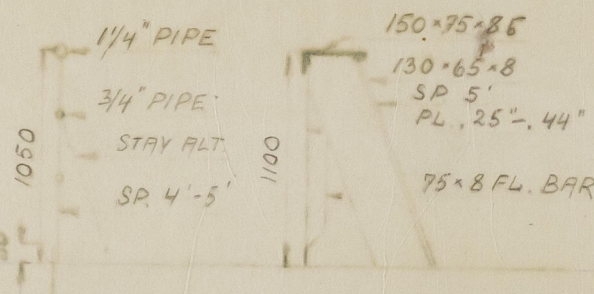 1 1/4" PIPE
3/4" PIPE
STAY ALT.
SP. 4'-5'
1050
150×75×85
130×65×8
SP 5'
PL. .25"-.44"
75×8 FL. BAR
1100